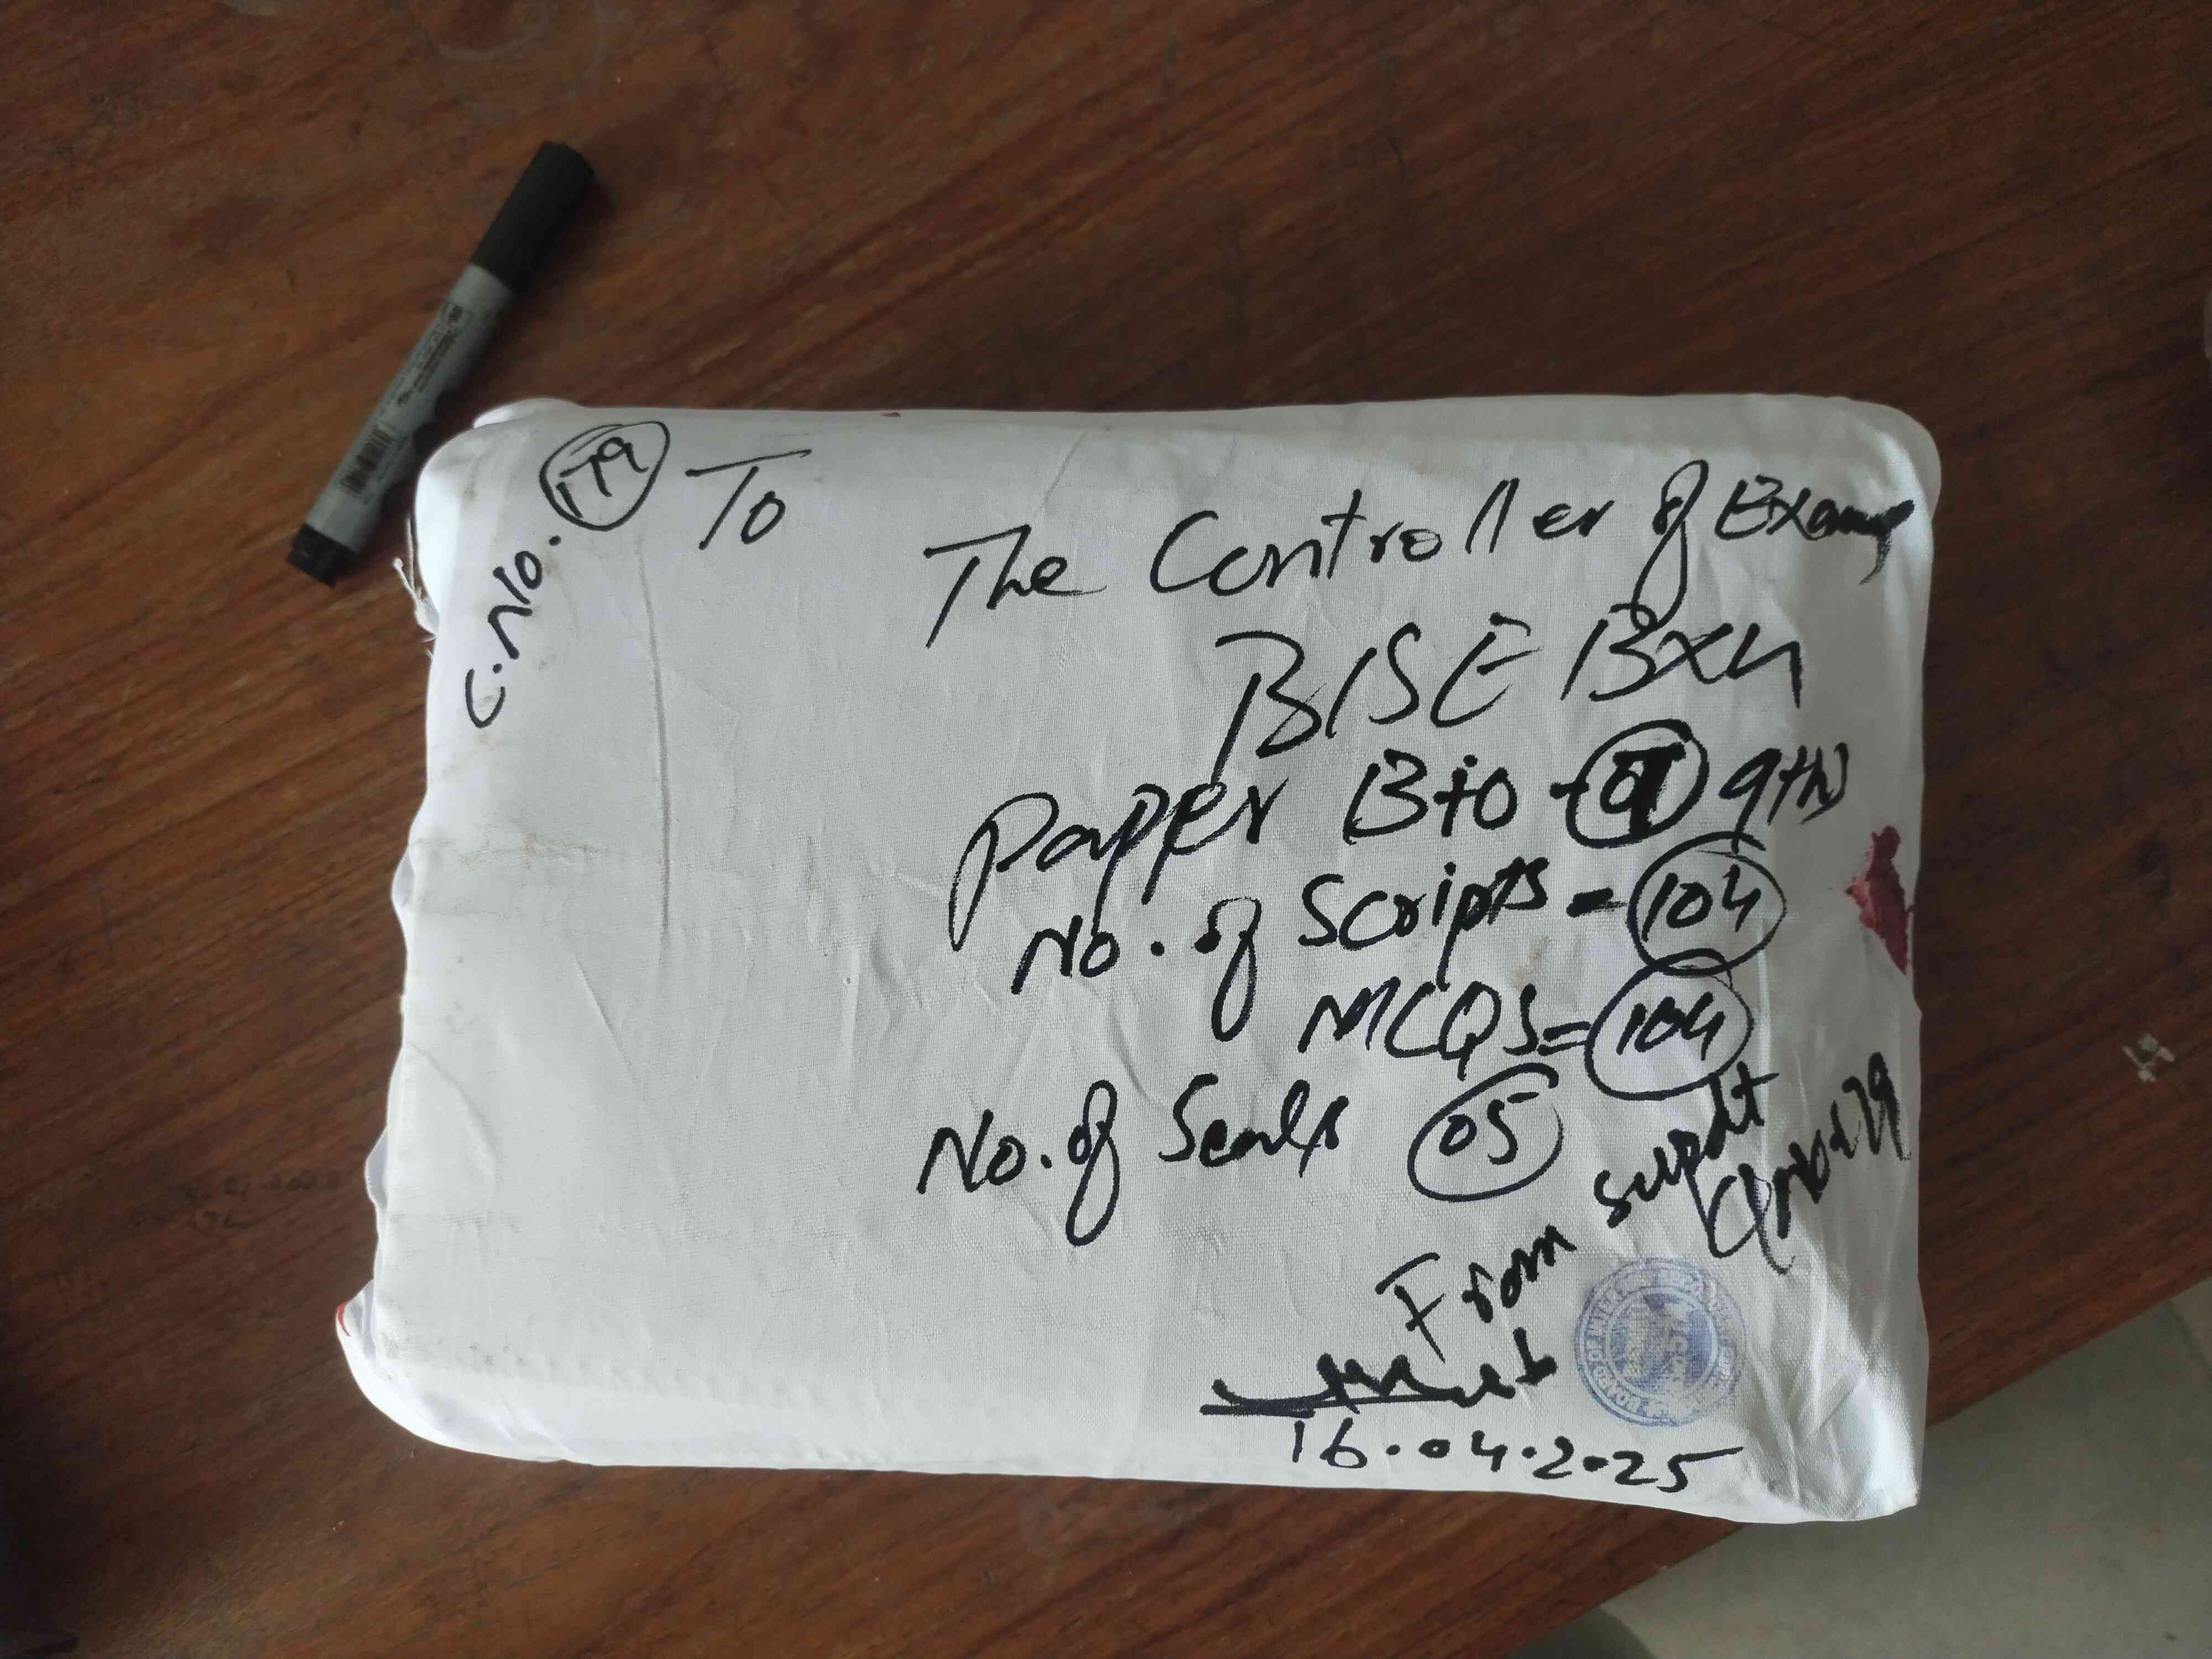 C.No. 179
To
The Controller of Exams
BISE Bxu
Papper Bio - 9th
No. of Scripts = 104
MCQS = 104
No. of Seals 05
From Supdt
C.No 179
16.04.2025
BOARD OF INTER